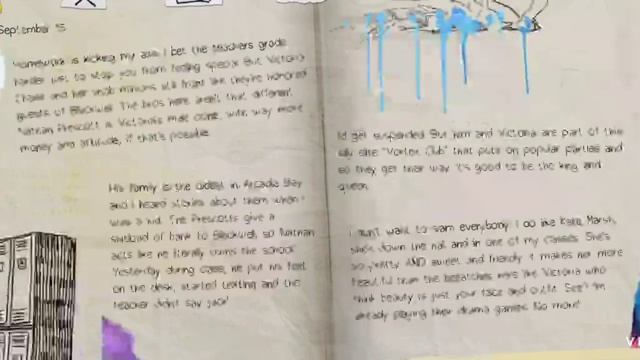 September 5
Homework is kicking my ass. I bet the teachers grade
harder just to stop you from feeling special. But Victoria
Chase and her snob minions still front like they're honored
guests of Blackwell. The bros here aren't that different.
Nathan Prescott is Victoria's male clone, with way more
money and attitude, if that's possible.
His family is the oldest in Arcadia Bay
and I heard stories about them when I
was a kid. The Prescotts give a
shitload of bank to Blackwell so Nathan
acts like he literally owns the school.
Yesterday during class, he put his feet
on the desk, started texting and the
teacher didn't say jack!
I'd get suspended. But him and Victoria are part of this
silly elite "Vortex Club" that puts on popular parties and
so they get their way. It's good to be the king and
queen.
I don't want to slam everybody. I do like Kate Marsh,
she's down the hall and in one of my classes. She's
so pretty AND sweet and friendly. It makes her more
beautiful than the beeatches here like Victoria who
think beauty is just your face and outfit. See? I'm
already playing their drama games. No more!